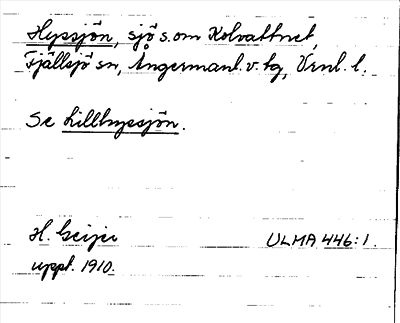 Hyssjön, sjö s.om Kolvattnet,
Fjällsjö sn, Ångermanl. v. tg, Vrnl. l.
Se Lillhyssjön.
H. Geijer ULMA 446:1.
uppt. 1910.